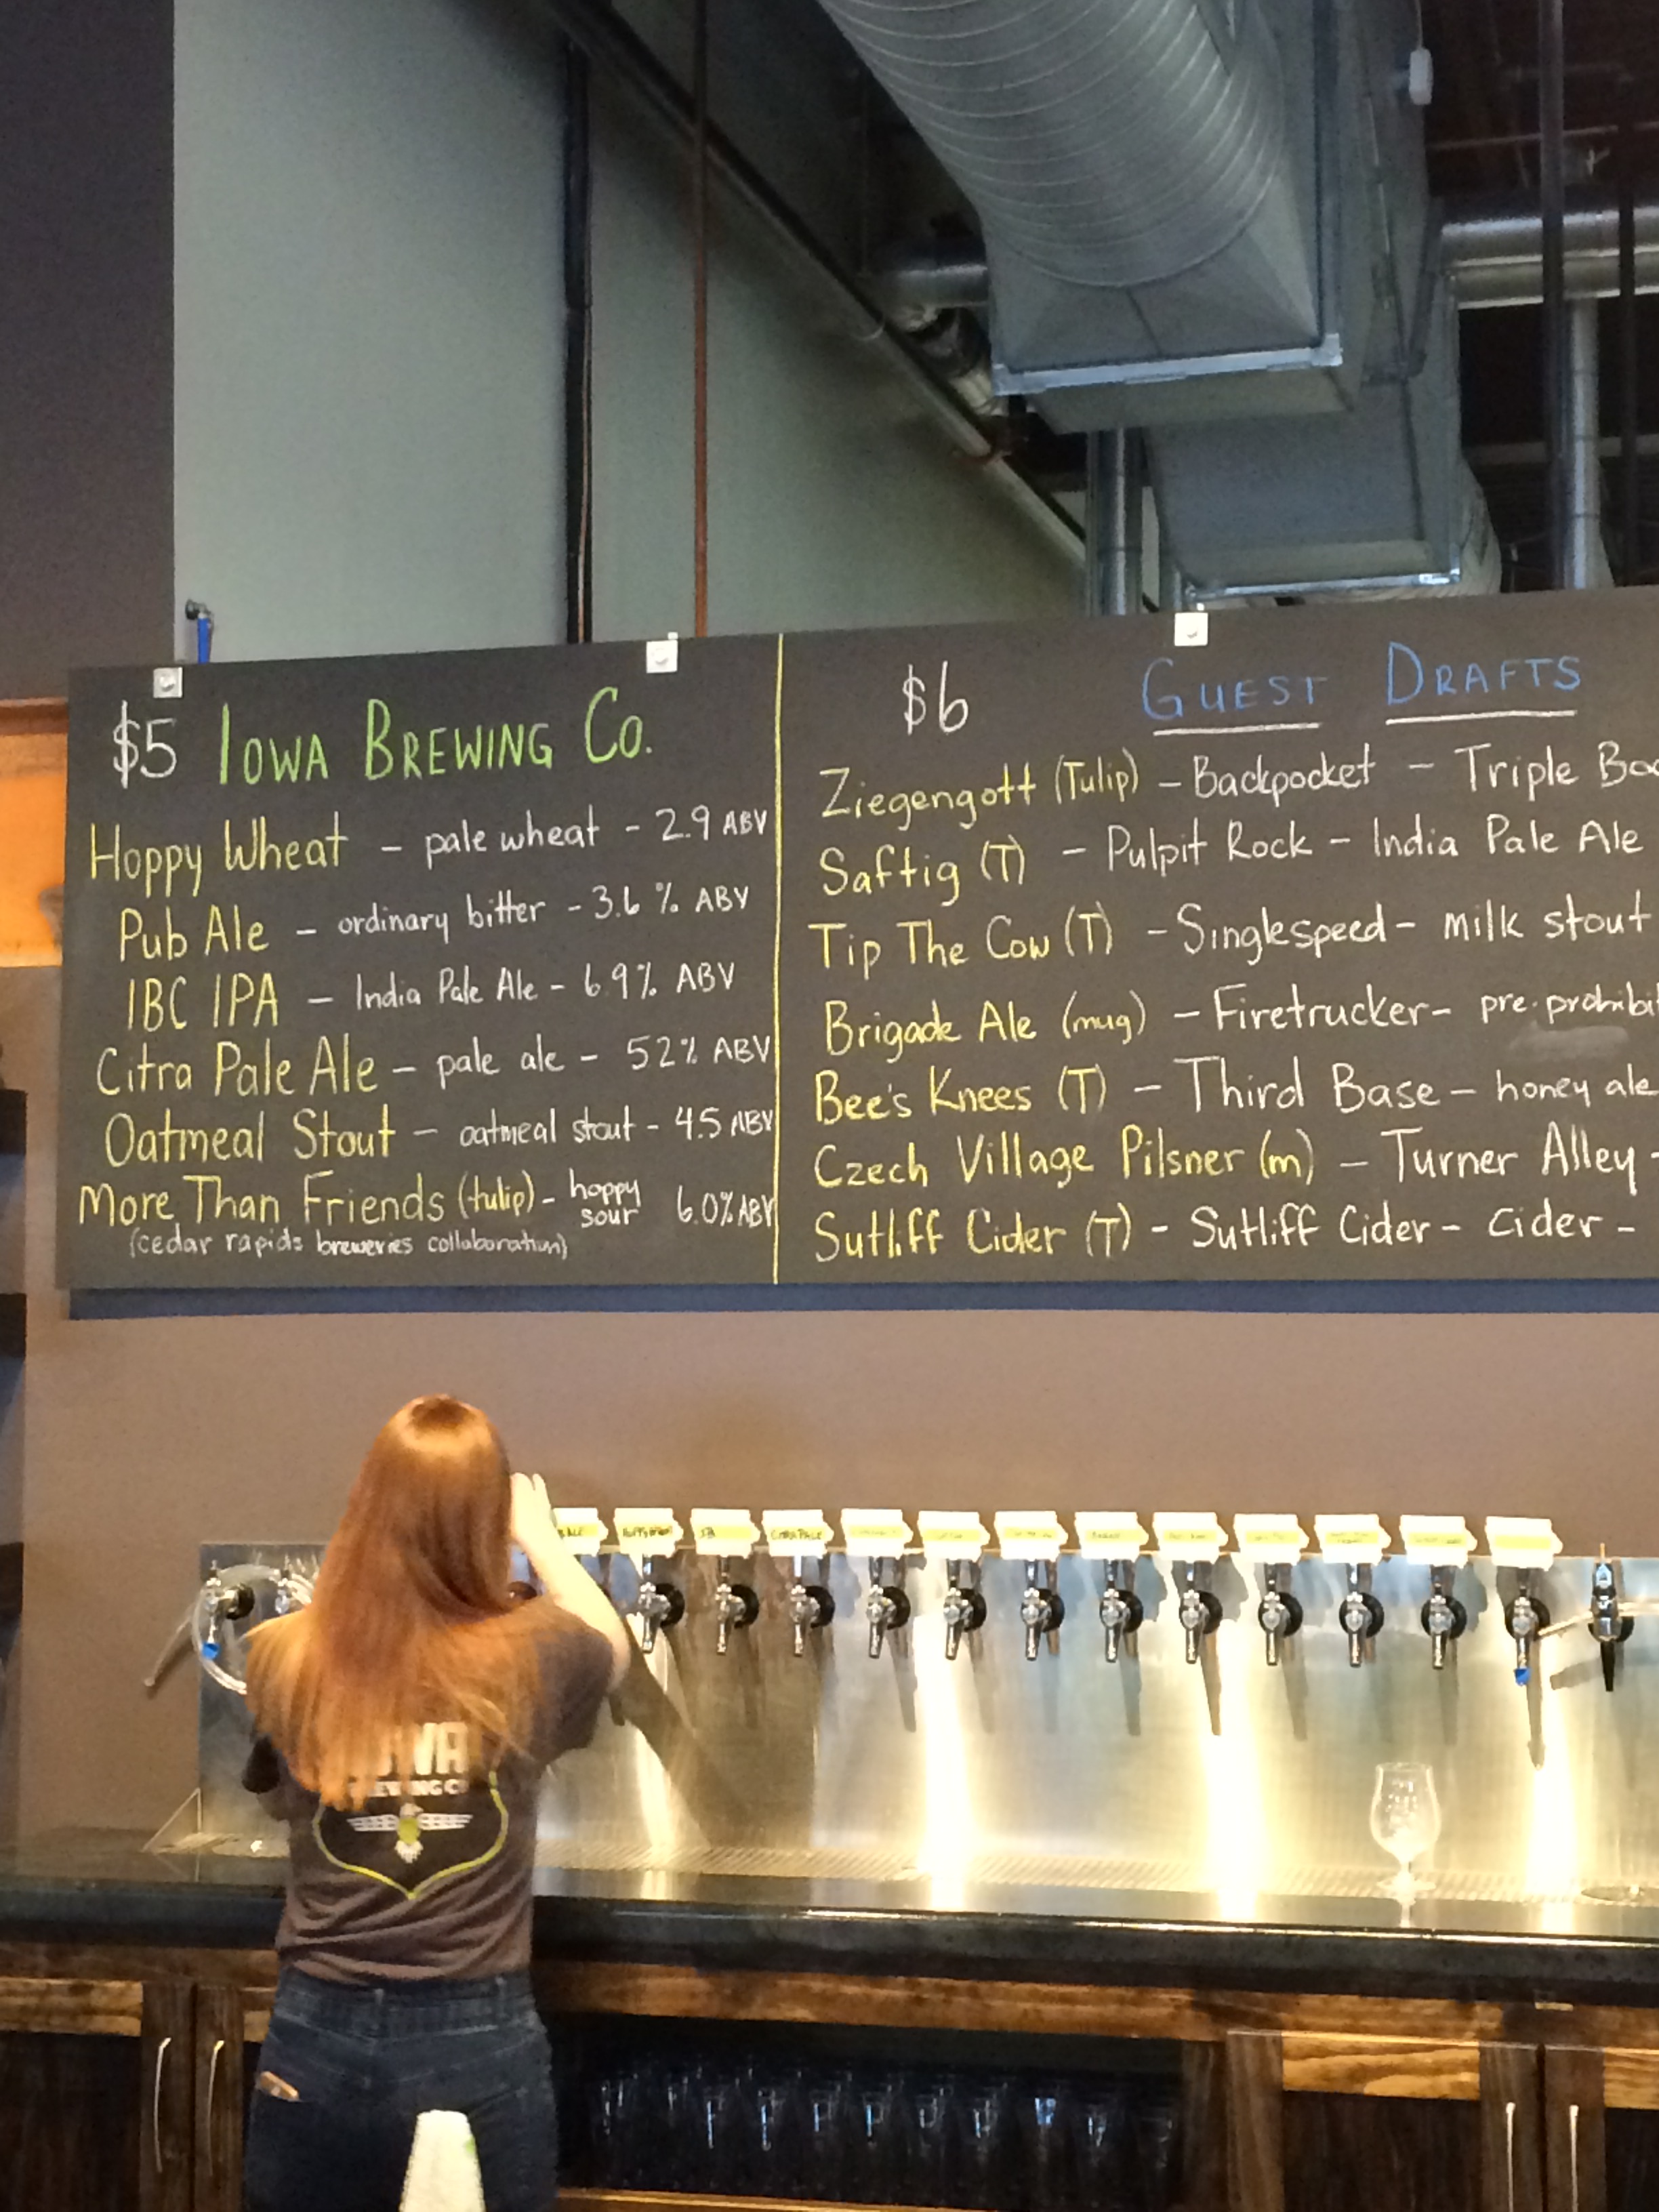 $5 IOWA BREWING CO.
Hoppy Wheat - pale wheat - 2.9 ABV
Pub Ale - ordinary bitter - 3.6 % ABV
IBC IPA - India Pale Ale - 6.9% ABV
Citra Pale Ale - pale ale - 5.2% ABV
Oatmeal Stout - oatmeal stout - 4.5 ABV
More Than Friends (tulip) - hoppy sour 6.0% ABV
(cedar rapids breweries collaboration)
$6 GUEST DRAFTS
Ziegengott (Tulip) - Backpocket - Triple
Saftig (T) - Pulpit Rock - India Pale Ale
Tip The Cow (T) - Singlespeed - milk stout
Brigade Ale (mug) - Firetrucker -
Bee's Knees (T) - Third Base - honey ale
Czech Village Pilsner (m) - Turner Alley -
Sutliff Cider (T) - Sutliff Cider - Cider -
CITRA PALE